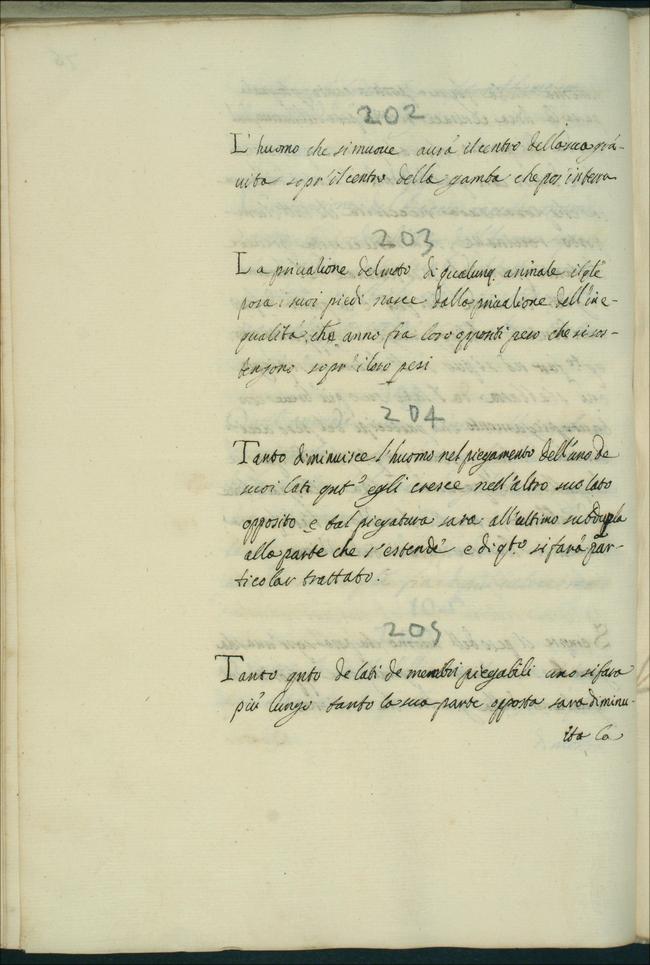 202
L'huomo che si muove aurà il centro della sua grà-
uita sopr'il centro della gamba che posa in terra
203
La priuatione del moto di qualunq. animale il qle
posa i suoi piedi nasce dalla priuatione dell'ine-
qualità, che anno fra loro oppositi pesi che si sos-
tengono sopr'i loro pesi
204
Tanto diminuisce l'huomo nel piegamento dell'uno de
suoi lati qnto egli cresce nell'altro suo lato
opposito e tal piegatura sara all'ultimo subdupla
alla parte che s'estende e di qto si farà par-
ticolar trattato.
205
Tanto qnto de lati de membri piegabili uno si fara
più lungo tanto la sua parte opposta sara diminu-
ita la